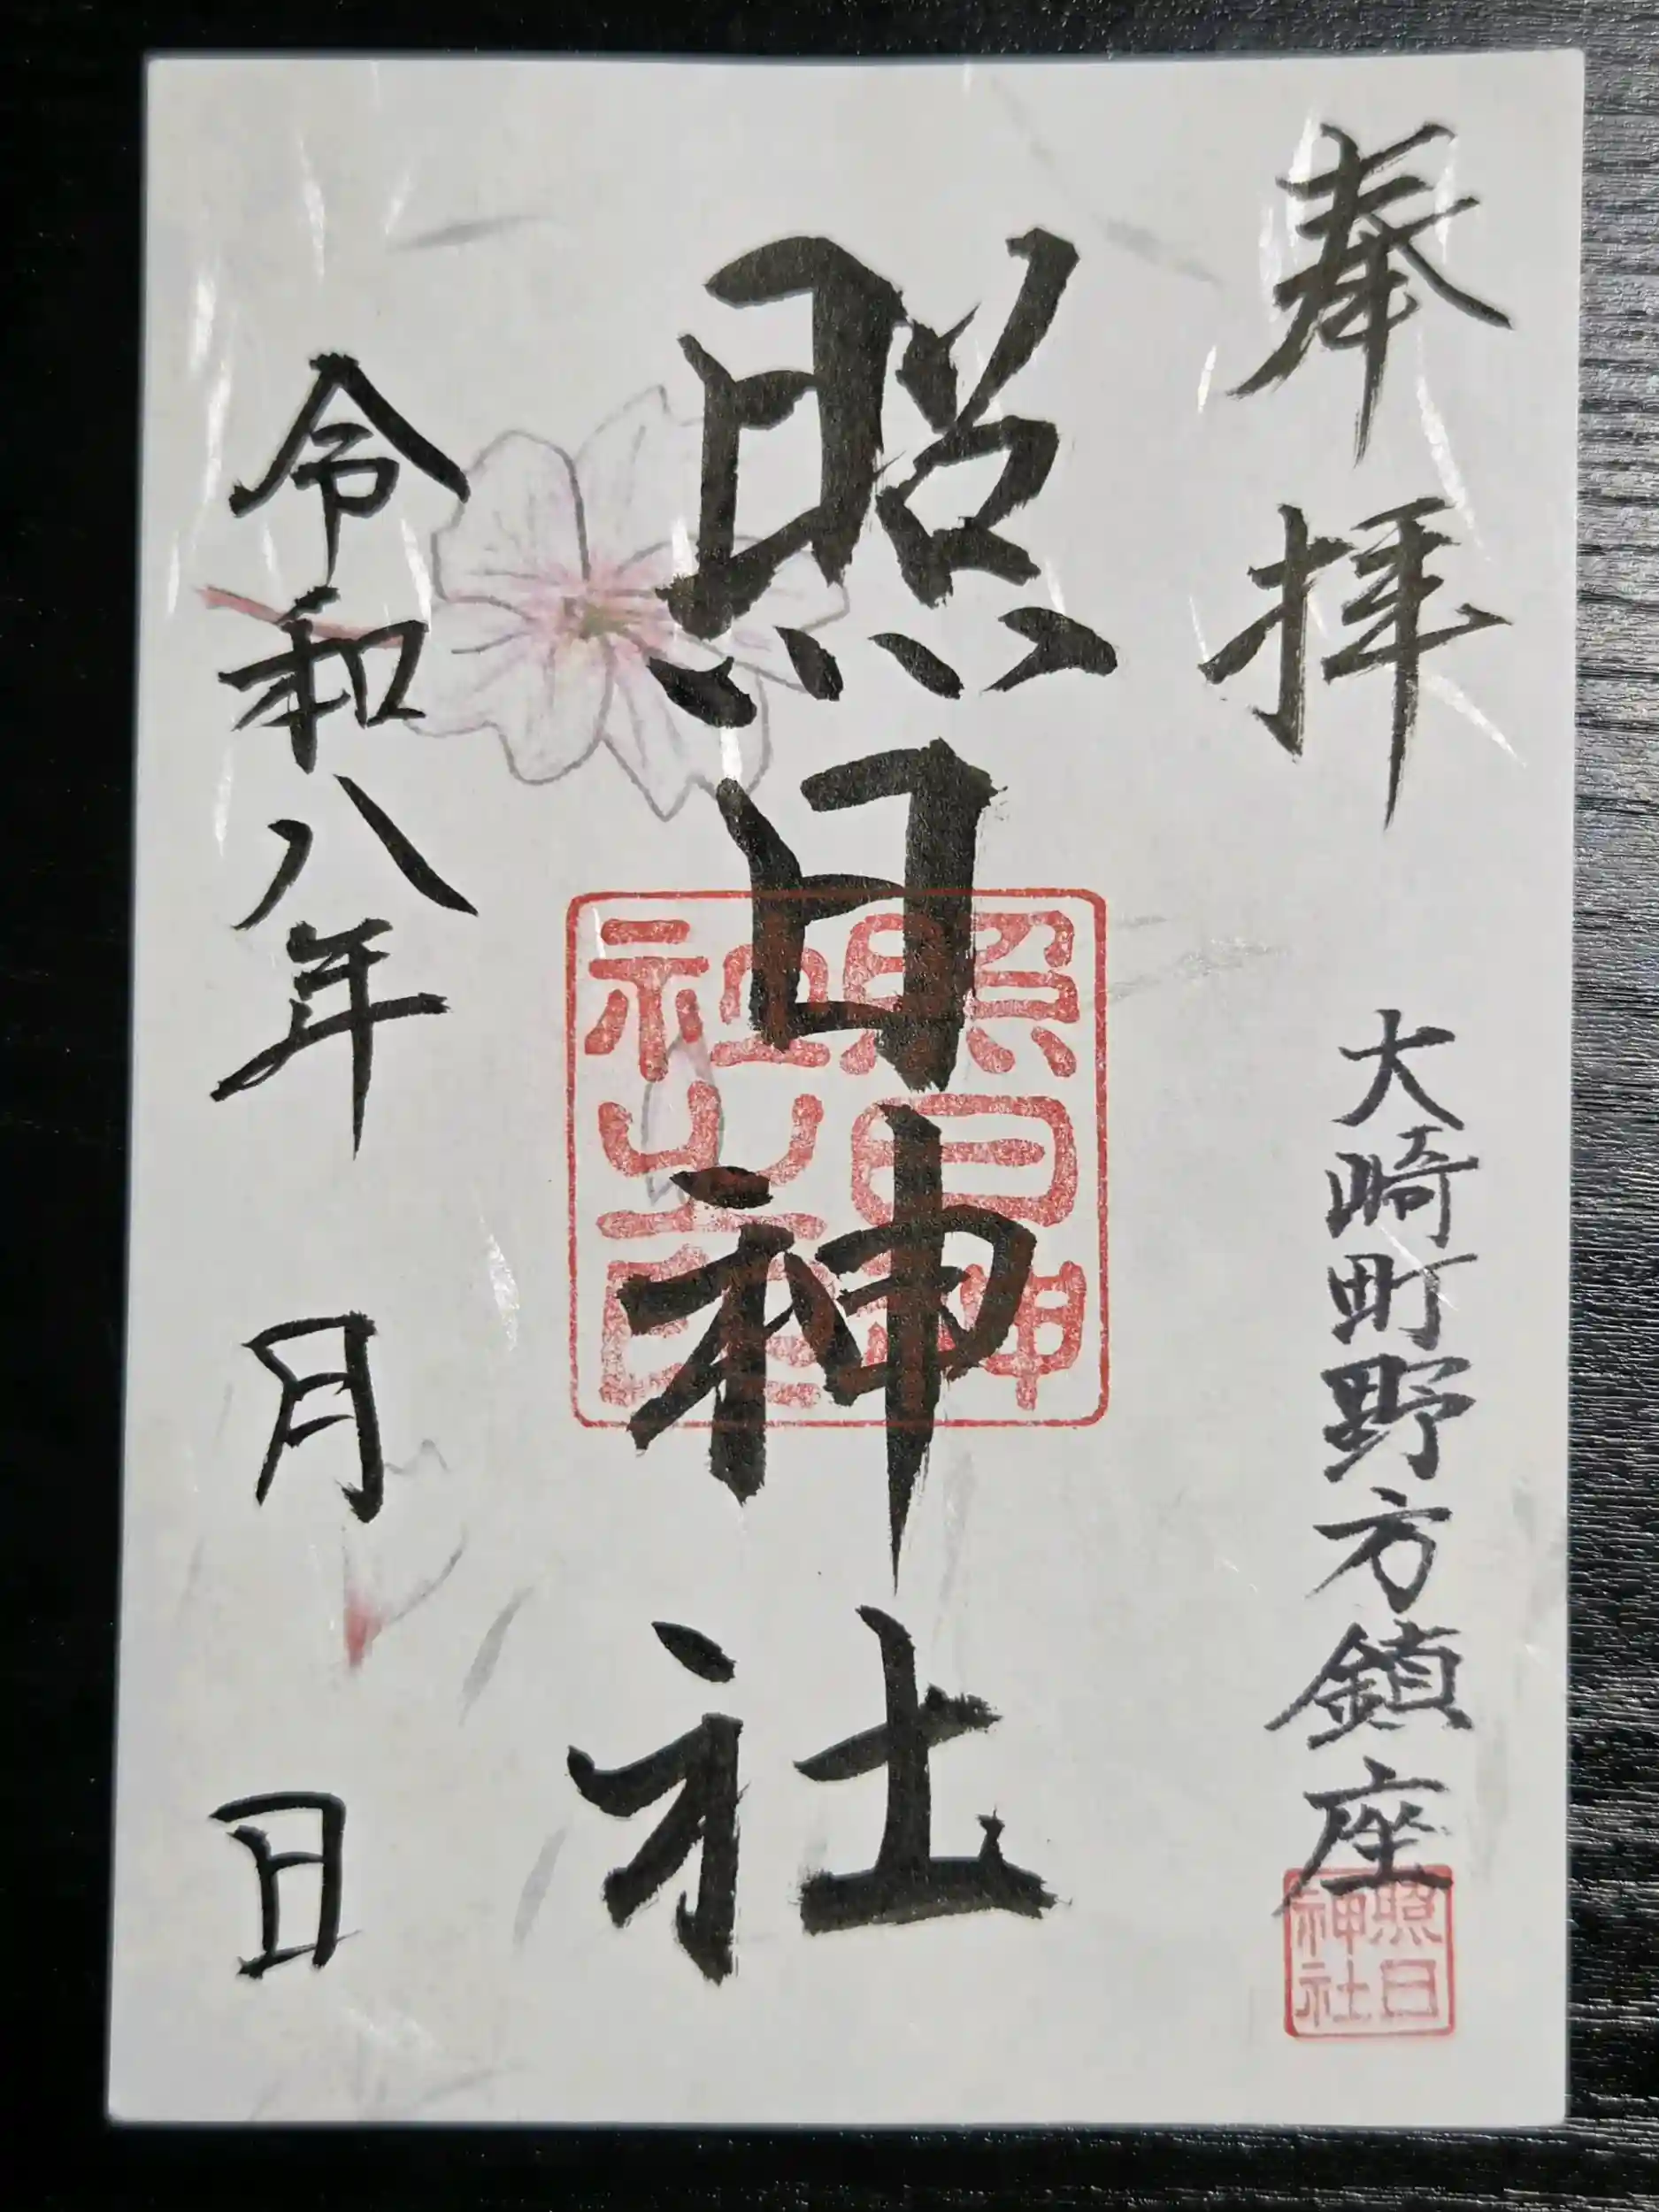 奉拝
大崎町野方鎮座
照日
神社
照日神社
照日神
社之印
令和八年 月 日